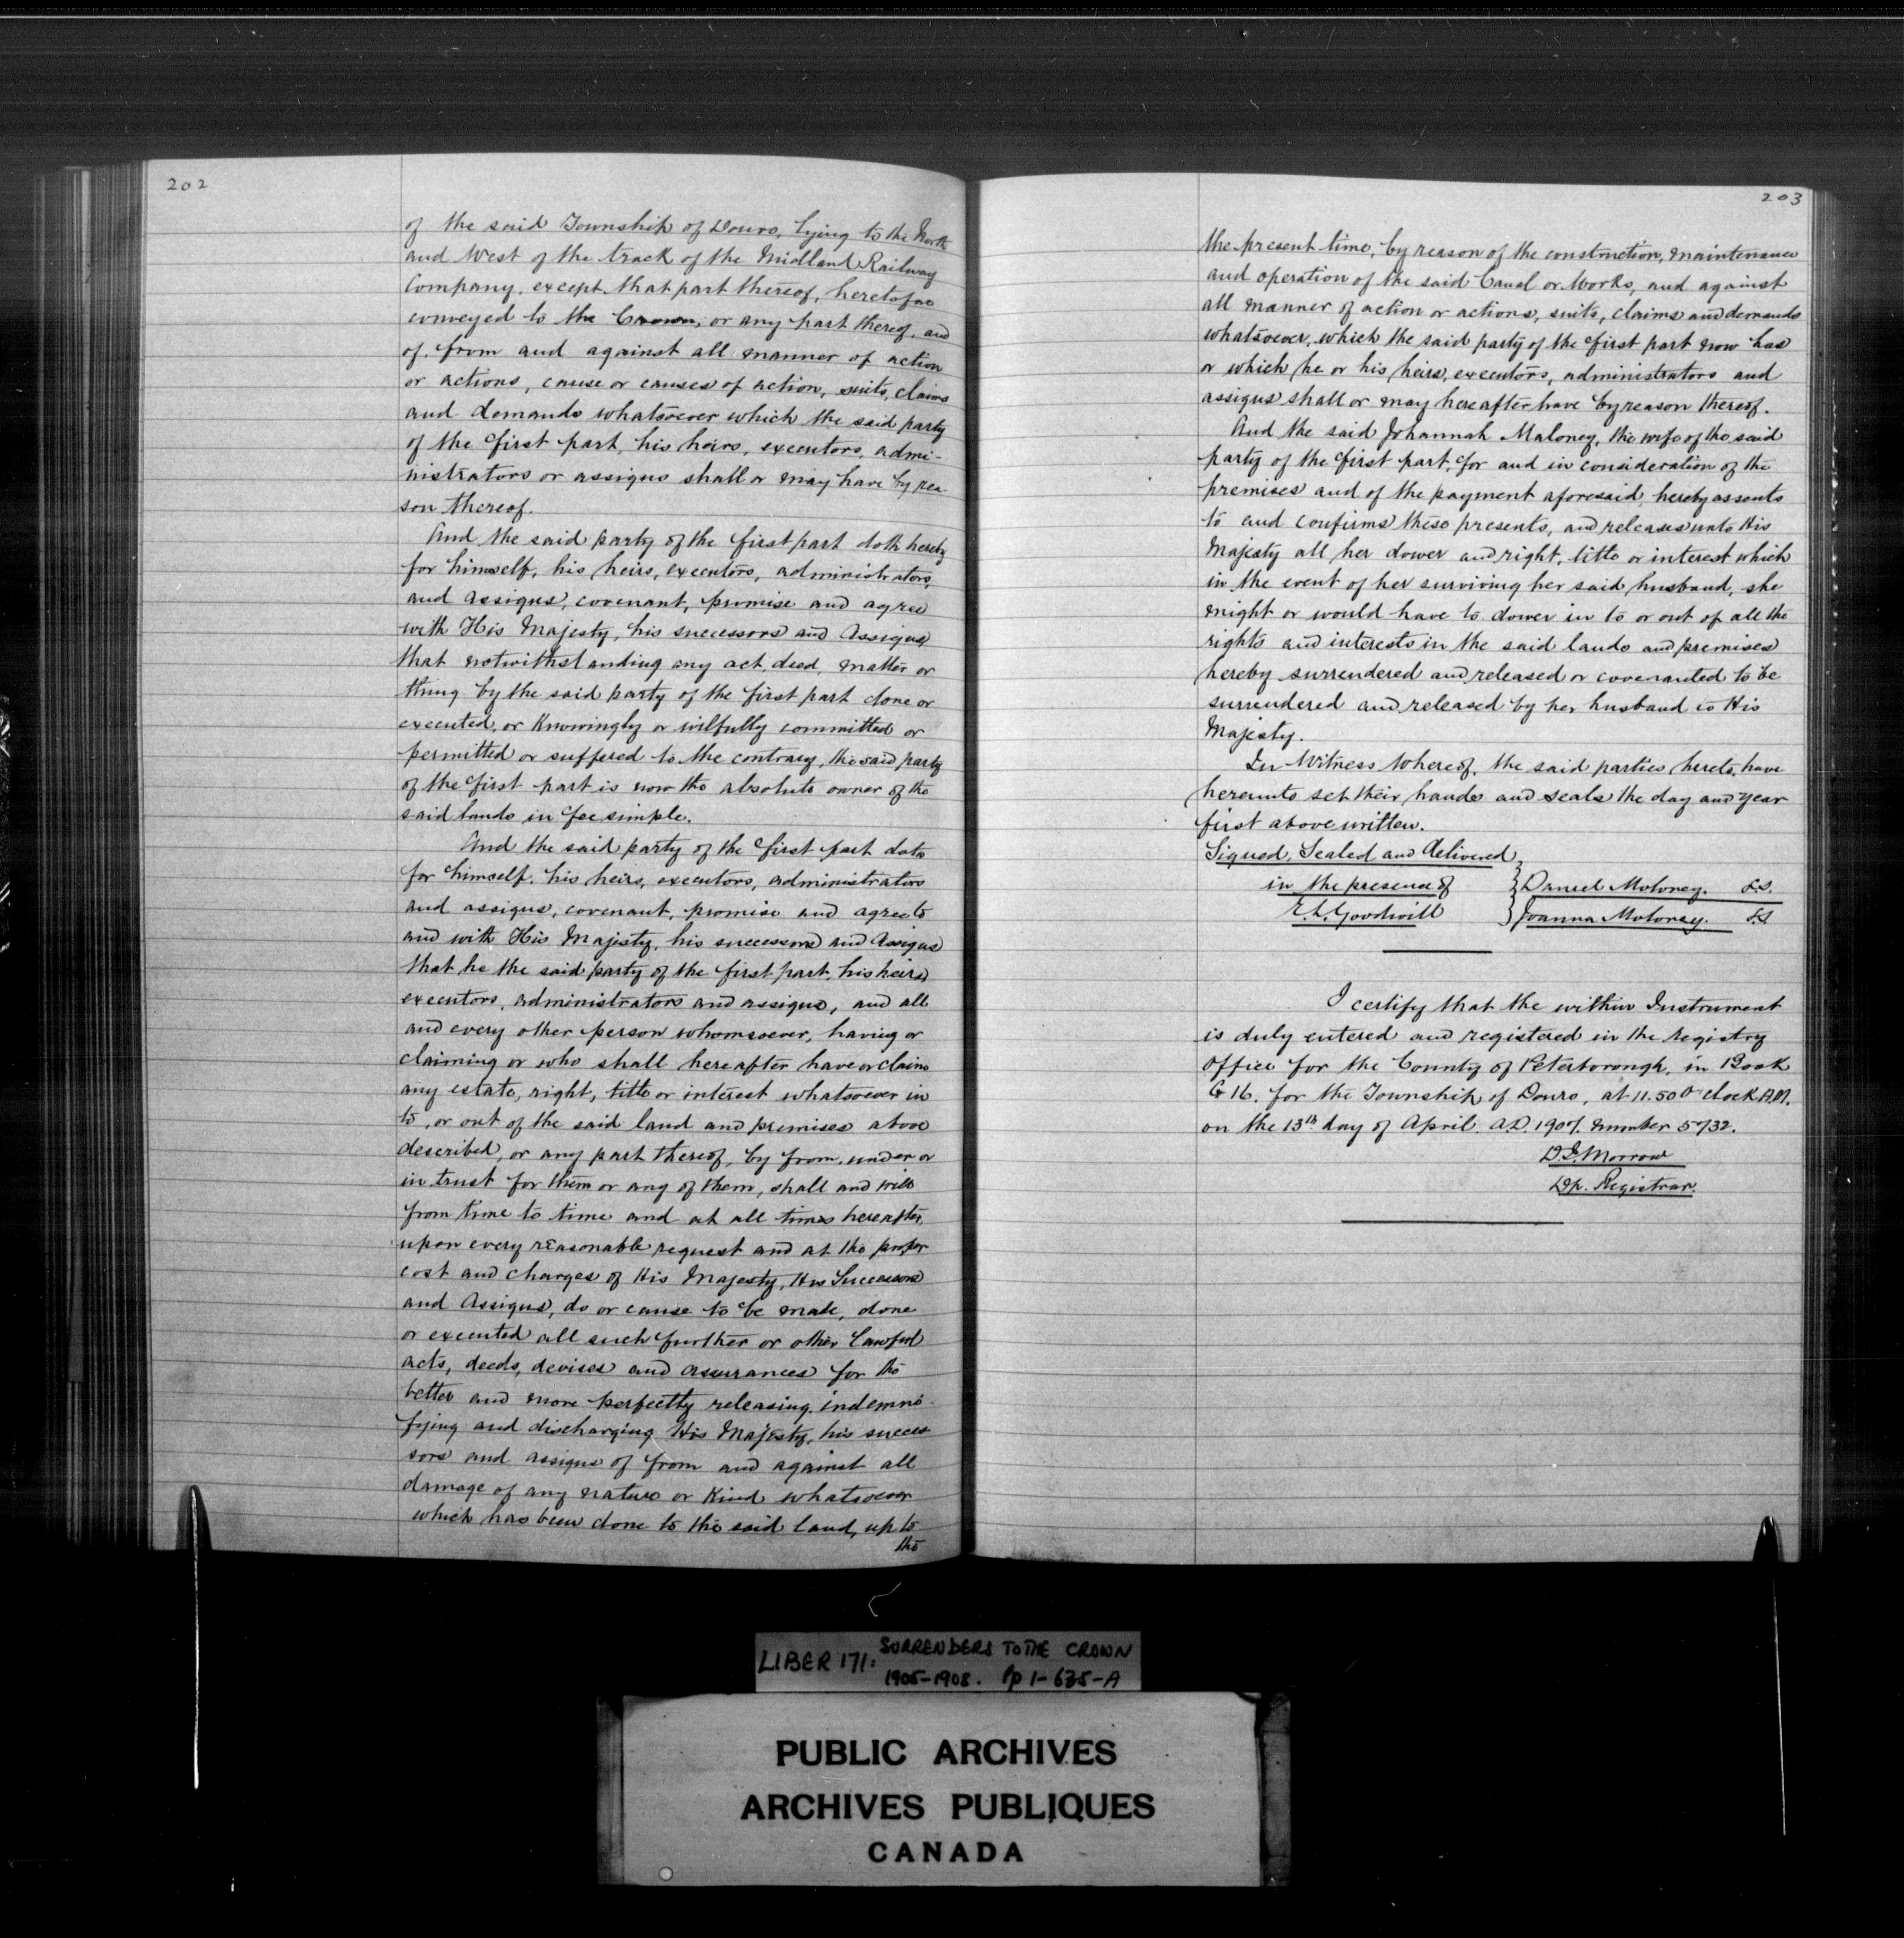 202
of the said Township of Douro, lying to the North
and West of the track of the Midland Railway
Company, except that part thereof, heretofore
conveyed to the Crown, or any part thereof, and
of, from and against all manner of action
or actions, cause or causes of action, suits, claims
and demands whatsoever which the said party
of the first part, his heirs, executors, admi-
nistrators or assigns shall or may have by rea-
son thereof.
And the said party of the first part doth hereby
for himself, his heirs, executors, administrators,
and assigns, covenant, promise and agree
with His Majesty, his successors and Assigns,
that notwithstanding any act, deed, matter or
thing by the said party of the first part done or
executed, or knowingly or wilfully committed or
permitted or suffered to the contrary, the said party
of the first part is now the absolute owner of the
said lands in fee simple.
And the said party of the first part doth
for himself, his heirs, executors, administrators
and assigns, covenant, promise and agree to
and with His Majesty, his successors and Assigns
that he the said party of the first part, his heirs,
executors, administrators and assigns, and all
and every other person whomsoever, having or
claiming or who shall hereafter have or claim
any estate, right, title or interest whatsoever in
to, or out of the said land and premises above
described, or any part thereof, by from, under or
in trust for them or any of them, shall and will
from time to time and at all times hereafter,
upon every reasonable request and at the proper
cost and charges of His Majesty, His Successors
and Assigns, do or cause to be made, done
or executed all such further or other lawful
acts, deeds, devises and assurances for the
better and more perfectly releasing, indemni-
fying and discharging His Majesty, his succes-
sors and assigns of from and against all
damage of any nature or kind whatsoever
which has been done to the said land, up to
the
203
the present time, by reason of the construction, maintenance
and operation of the said Canal or Works, and against
all manner of action or actions, suits, claims and demands
whatsoever, which the said party of the first part now has
or which he or his heirs, executors, administrators and
assigns shall or may hereafter have by reason thereof.
And the said Johannah Maloney, the wife of the said
party of the first part, for and in consideration of the
premises and of the payment aforesaid, hereby assents
to and confirms these presents, and releases unto His
Majesty all her dower and right, title or interest which
in the event of her surviving her said husband, she
might or would have to dower in to or out of all the
rights and interests in the said lands and premises
hereby surrendered and released or covenanted to be
surrendered and released by her husband to His
Majesty.
In Witness Whereof, the said parties hereto, have
hereunto set their hands and seals the day and year
first above written.
Signed, Sealed and Delivered
in the presence of } Daniel Moloney. L.S.
E.L. Goodwill } Joanna Moloney. L.S
I certify that the within Instrument
is duly entered and registered in the Registry
Office for the County of Peterborough, in Book
G 16. for the Township of Douro, at 11.50 O'clock A.M.
on the 13th day of April. A.D. 1907. number 5732.
D.E. Morrow
Dp. Registrar.
LIBER 171: SURRENDERS TO THE CROWN
1905-1908. Pp 1-635-A
PUBLIC ARCHIVES
ARCHIVES PUBLIQUES
CANADA